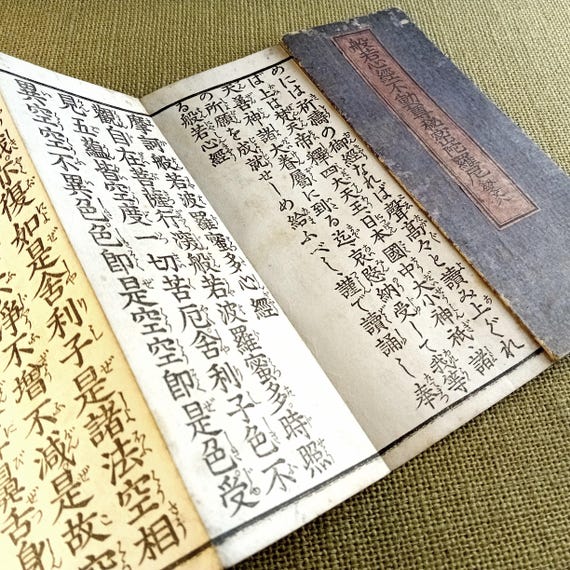 般若心經不動尊秘密陀羅尼經入
のには祈禱の御經なれば聲高々と讀み上ぐれ
ば上は梵天帝釋四大天王日本國中大小神祇諸
天善神諸大眷屬に到る迄哀愍納受して我等
の祈願を成就せしめ給ふべし謹で讀誦し奉
る般若心經
摩訶般若波羅蜜多心經
觀自在菩薩行深般若波羅蜜多時照
見五蘊皆空度一切苦厄舍利子色不
異空空不異色色即是空空即是色受
識亦復如是舍利子是諸法空相
淨不增不減是故空
鼻舌身